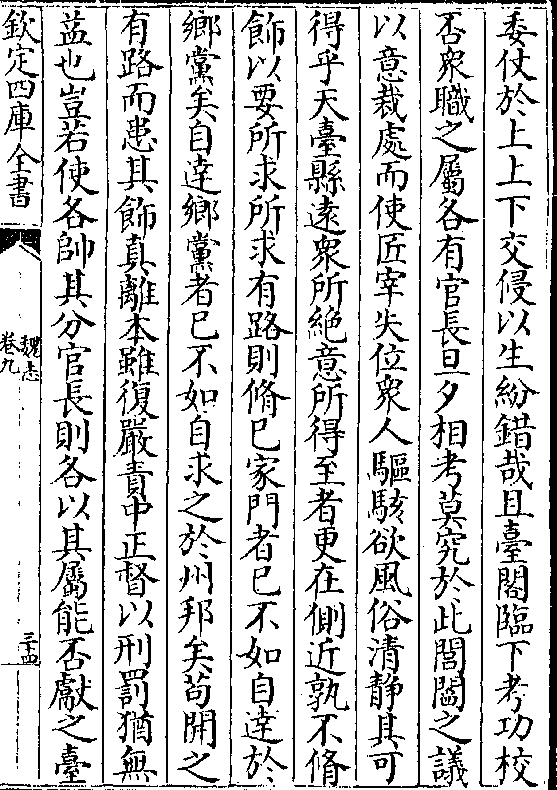 委仗於上上下交侵以生紛錯哉且臺閣臨下考功校
否衆職之屬各有官長旦夕相考莫究於此閭閻之議
以意裁處而使匠宰失位衆人驅駭欲風俗清静其可
得乎天臺縣逺衆所絶意所得至者更在側近孰不脩
飾以要所求所求有路則脩已家門者已不如自逹於
鄉黨矣自逹鄉黨者已不如自求之於州邦矣茍開之
有路而患其飾真離本雖復嚴責中正督以刑罰猶無
益也豈若使各帥其分官長則各以其屬能否獻之臺
欽定四庫全書
魏志
卷九
三十四